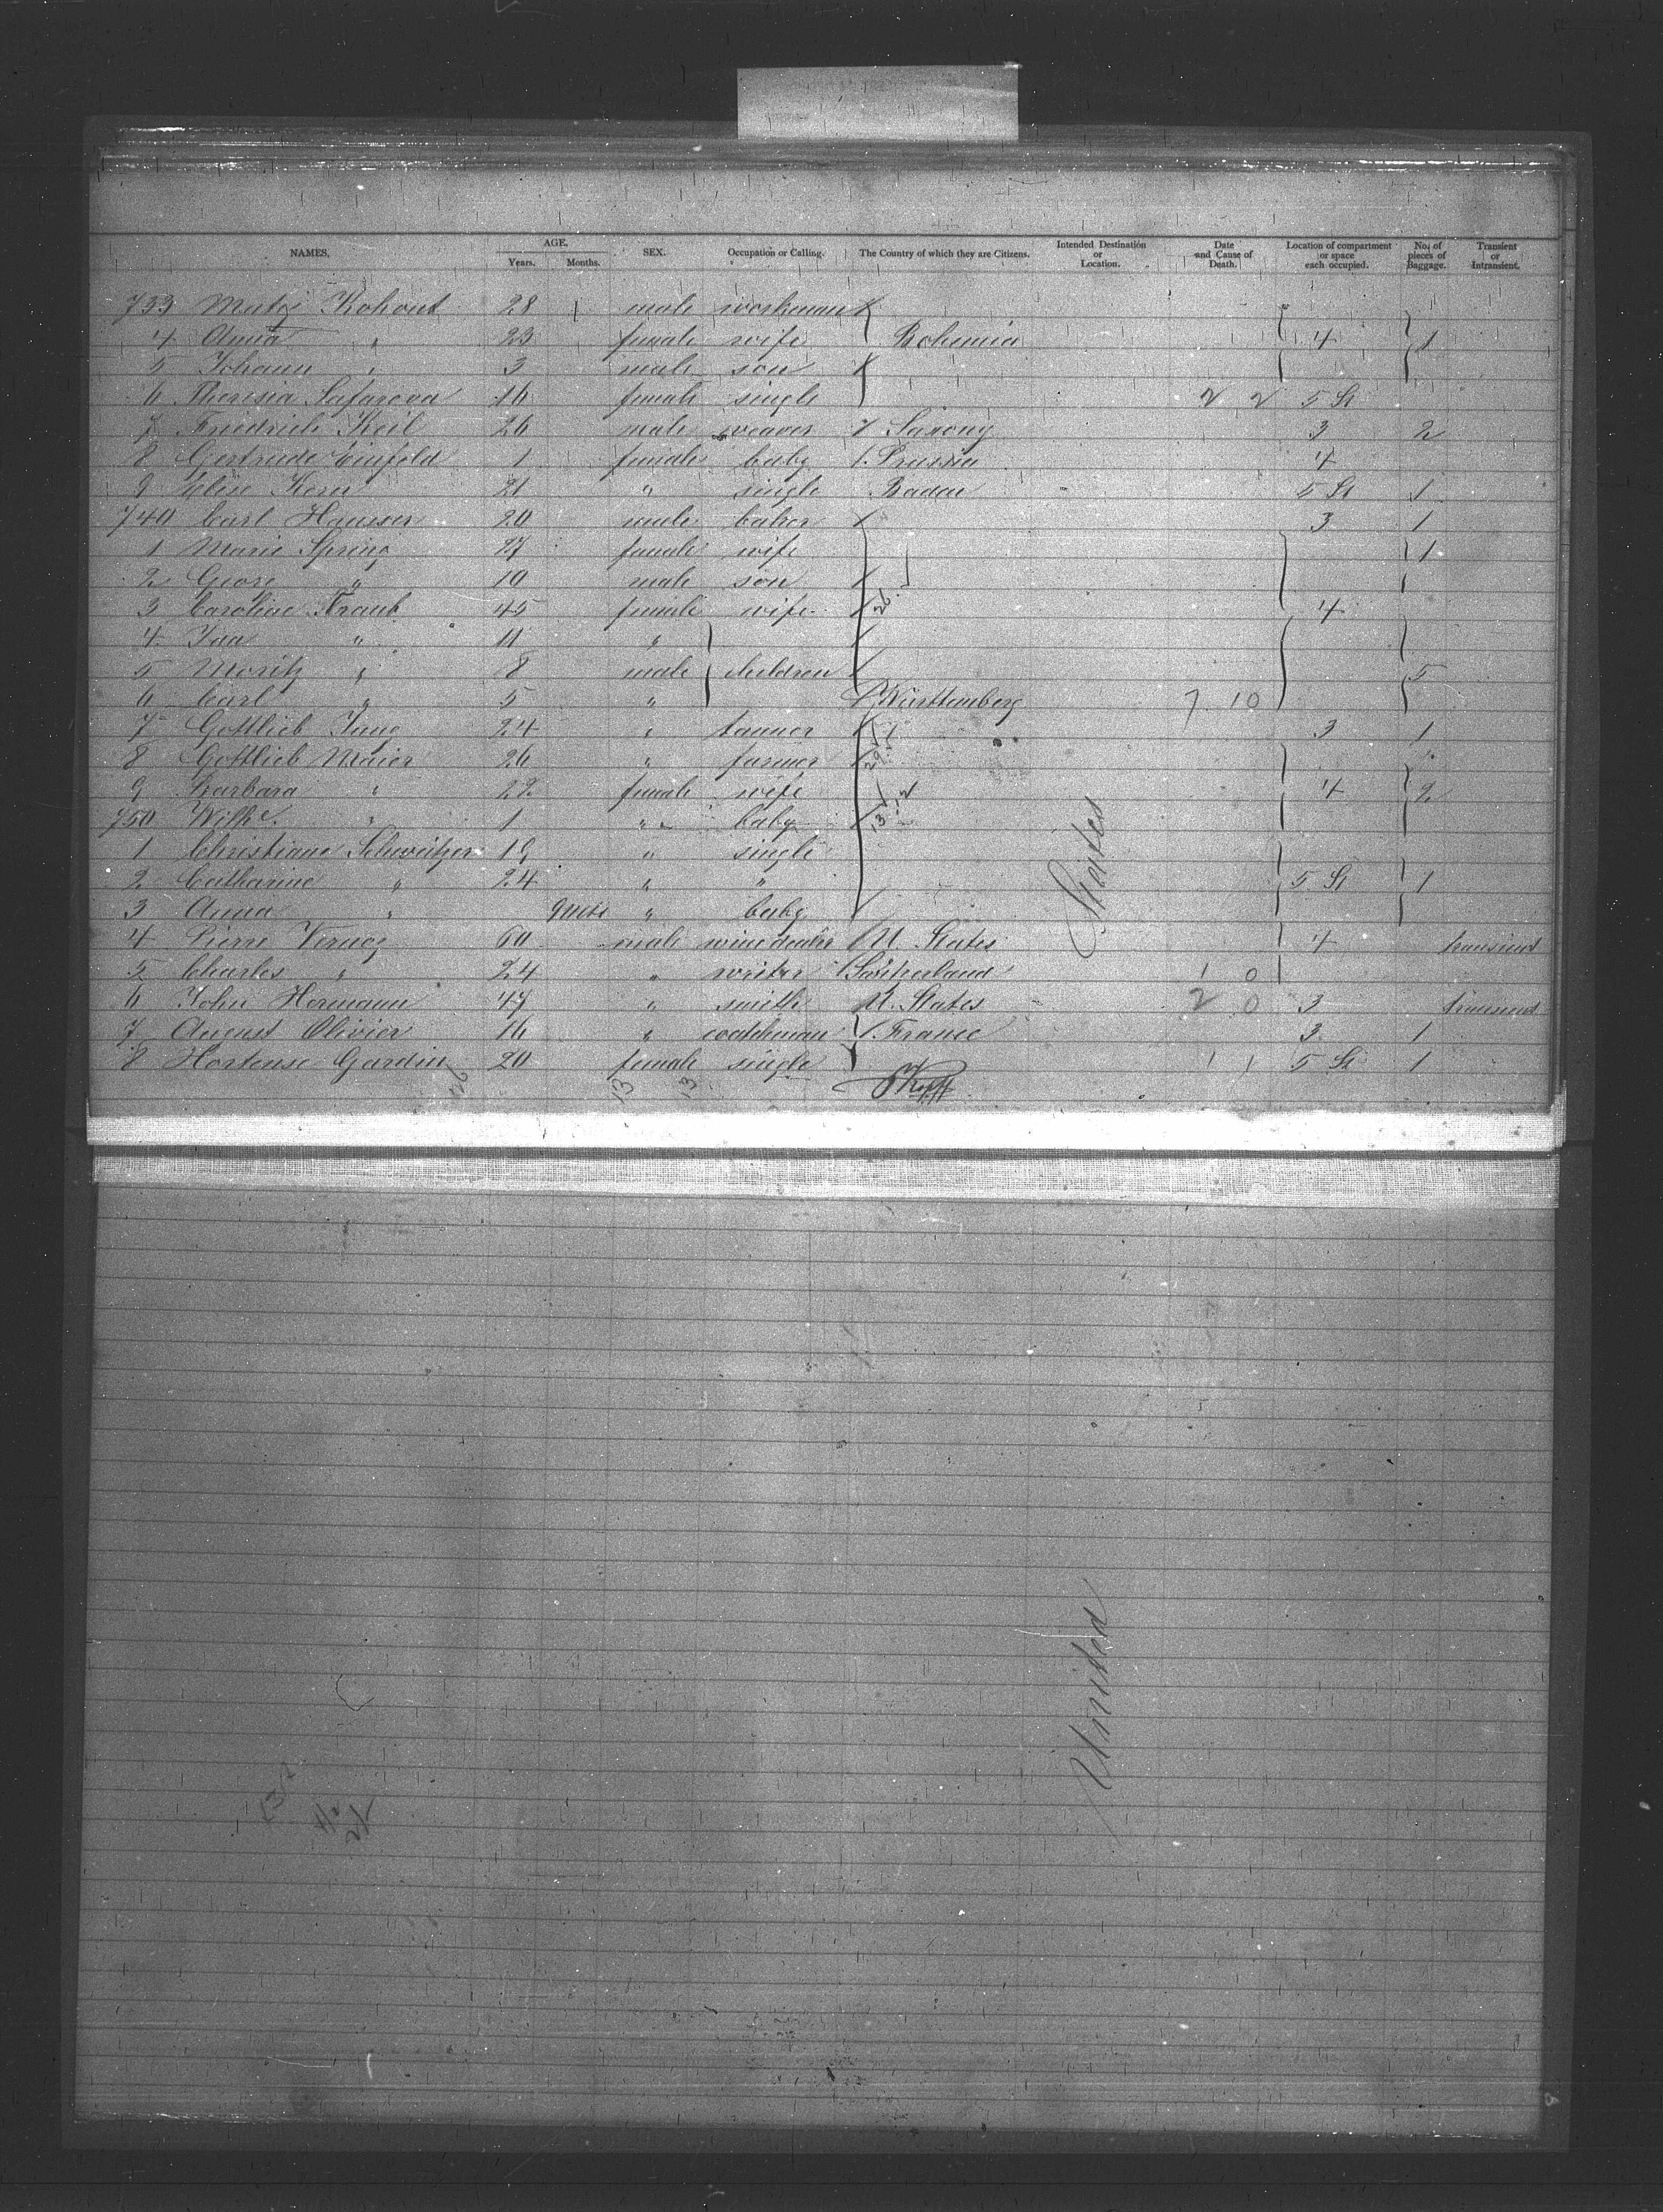 NAMES. AGE. Years. Months. SEX. Occupation or Calling. The Country of which they are Citizens. Intended Destination or Location. Date and Cause of Death. Location of compartment or space each occupied. No. of pieces of Baggage. Transient or Intransient.
733 Matej Kohout 28 male workman
4 Anna " 23 female wife Bohemia 4 1
5 Johann " 3 male son
6 Theresia Safarova 16 female single 2 2 5 St
7 Friedrich Keil 26 male weaver Saxony 3 2
8 Gertrude Einfeld 1 female baby Prussia 4
9 Elise Kern 21 " single Baden 5 St 1
740 Carl Hausser 20 male baker 3 1
1 Marie Spring 27 female wife 1
2 Georg " 10 male son
3 Caroline Traub 45 female wife 26 4
4 Ida " 11 "
5 Moritz " 8 male children 5
6 Carl " 5 " Württemberg 7 10
7 Gottlieb Jung 24 " tanner 3 1
8 Gottlieb Maier 26 " farmer 29
9 Barbara " 22 female wife 4 2
750 Wilhe. " 1 " baby 13 12
1 Christiane Schweitzer 19 " single
2 Catharine " 24 " " 5 St 1
3 Anna " 9 mts " baby
4 Pierre 60 male wine dealer U. States 4 transient
5 Charles " 24 " writer Switzerland 1 0
6 John Hermann 47 " smith U. States 2 0 3 transient
7 August Olivier 16 " coachman France 3 1
8 Hortense Gardin 20 female single 1 1 5 St 1
26 13 13
United States